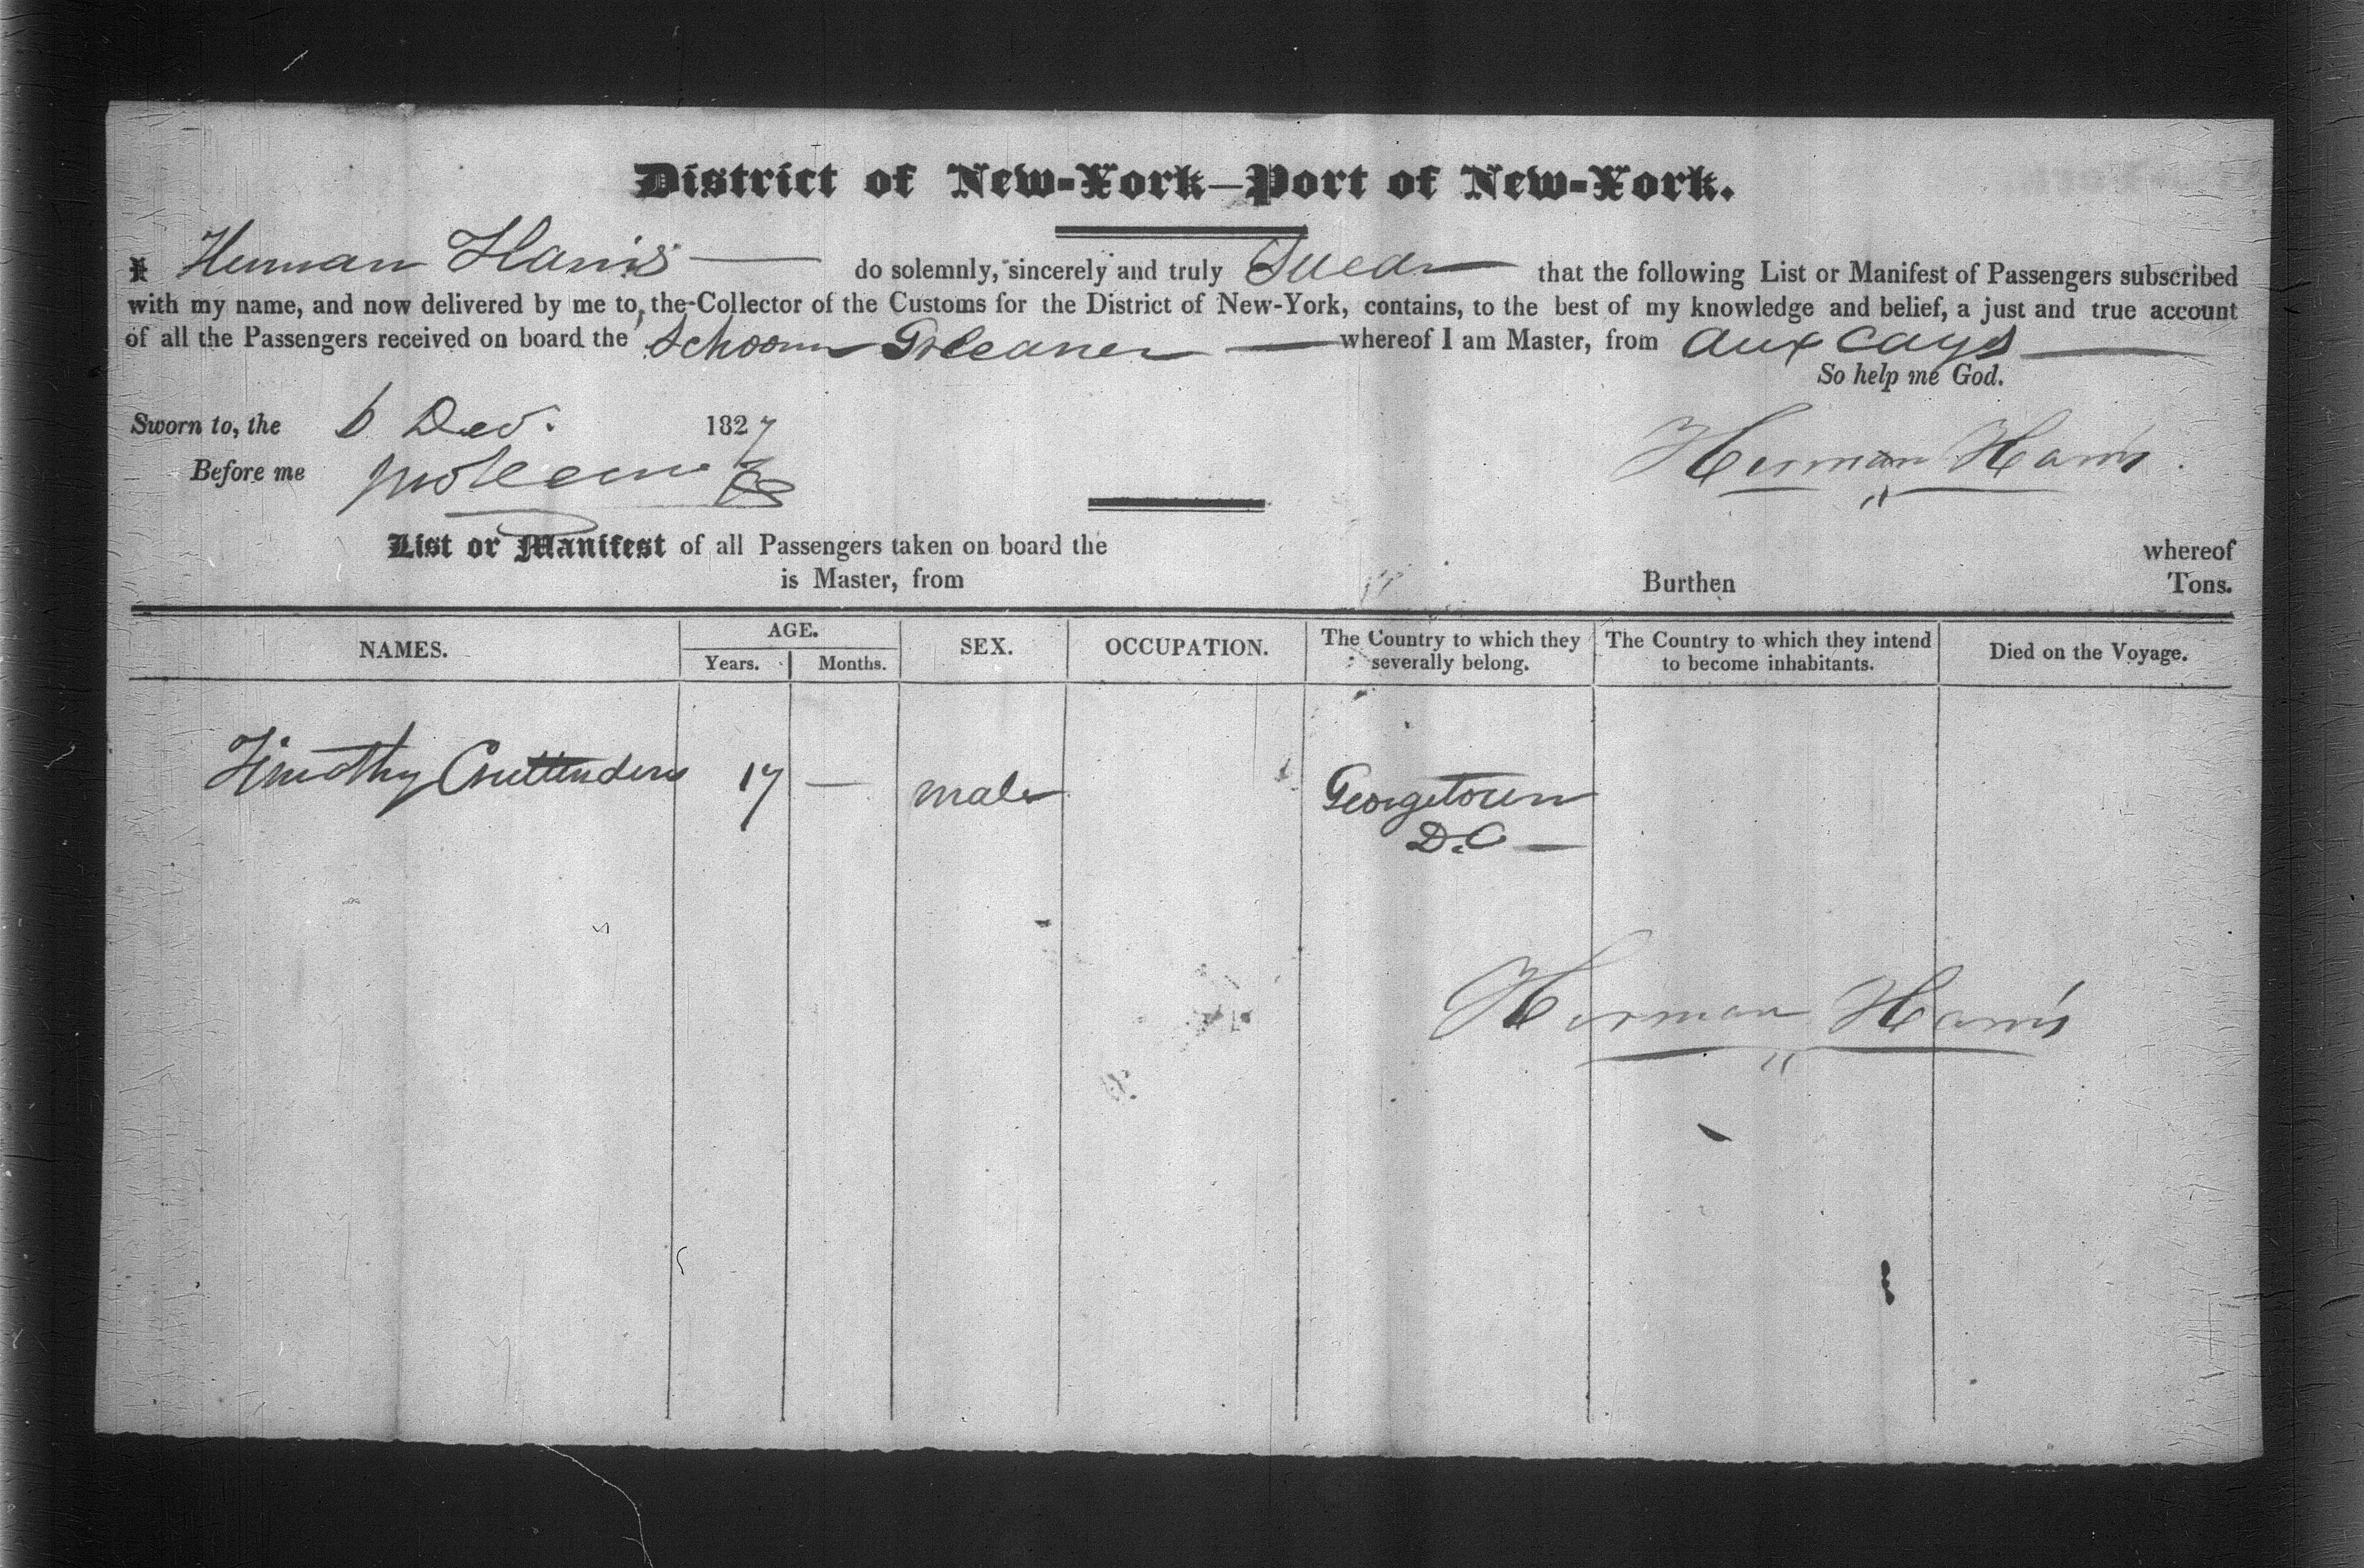 District of New-York—Port of New-York.
I Herman Harris do solemnly, sincerely and truly Swear that the following List or Manifest of Passengers subscribed
with my name, and now delivered by me to the Collector of the Customs for the District of New-York, contains, to the best of my knowledge and belief, a just and true account
of all the Passengers received on board the Schooner Gleaner whereof I am Master, from Aux Cays
So help me God.
Sworn to, the 6 Dec. 1827
Herman Harris
Before me
List or Manifest of all Passengers taken on board the whereof
is Master, from Burthen Tons.
NAMES. AGE. SEX. OCCUPATION. The Country to which they severally belong. The Country to which they intend to become inhabitants. Died on the Voyage.
Years. Months.
Timothy Cruttenden 17 — male Georgetown
D.C —
Herman Harris